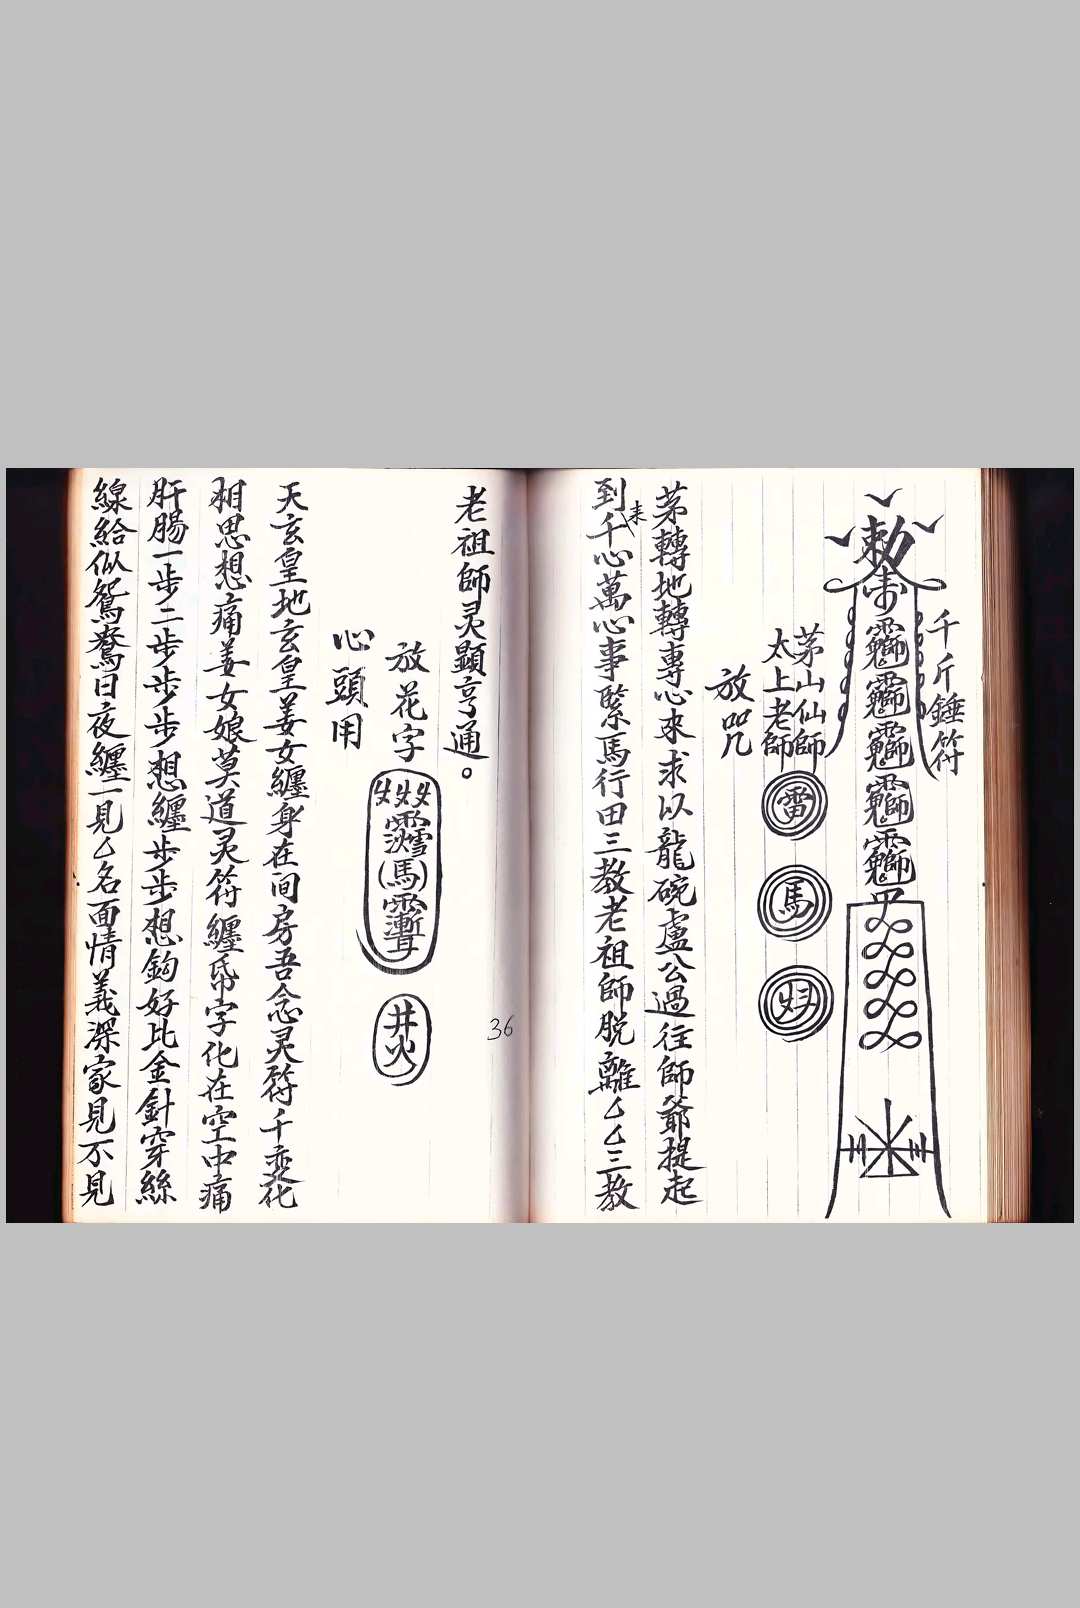 千斤錘符
勅令
茅山仙師
太上老師
雷
馬
放咒
茅轉地轉專心來求以龍碗盧公過往師爺提起
到千來心萬心事緊馬行田三教老祖師脱離厶厶三教
老祖師灵顯亨通。
放花字
(馬)
井火
心頭用
天玄皇地玄皇姜女纏身在间房吾念灵符千变化
相思想痛姜女娘莫道灵符纏氏字化在空中痛
肝腸一步二步步步想纏步步想鈎好比金針穿絲
線給似鴛鴦日夜纏一見厶名面情義深家見不見
36